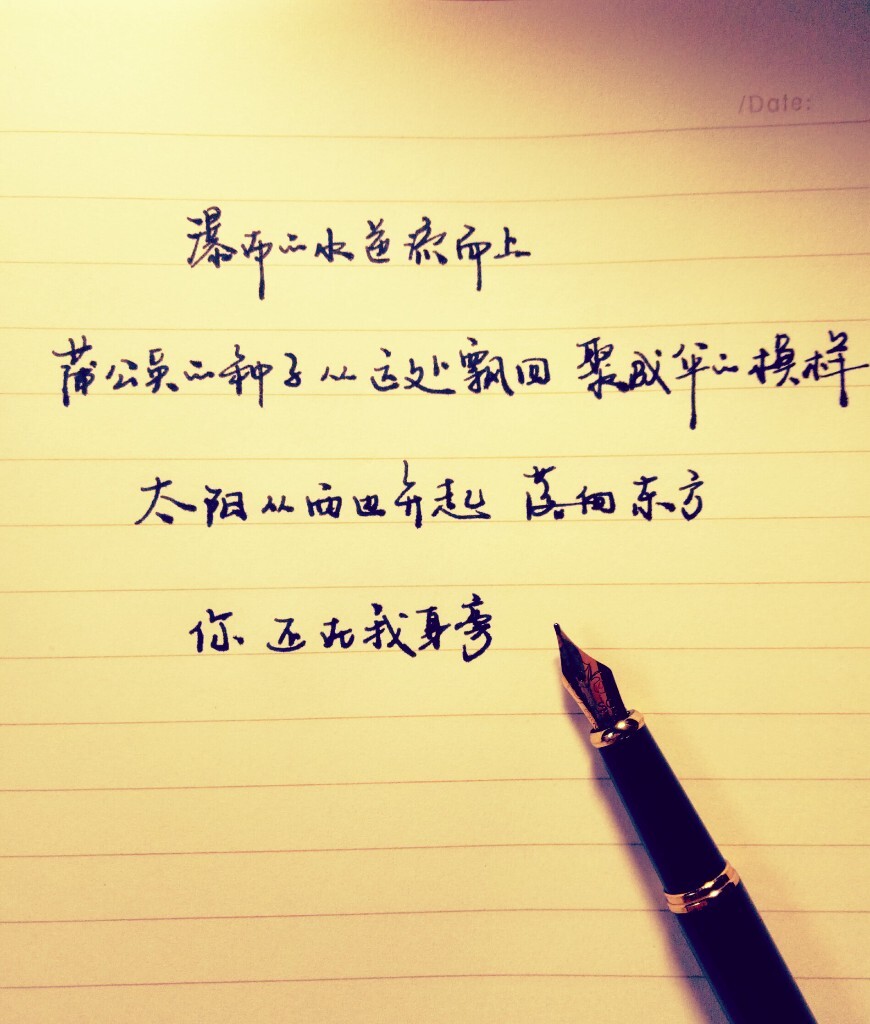 /Date:
瀑布的水逆流而上
蒲公英的种子从远处飘回 聚成伞的模样
太阳从西边升起 落向东方
你还在我身旁